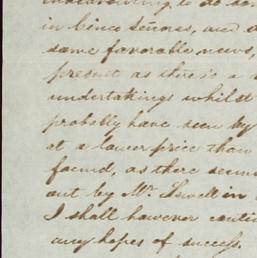 to do
in Cinco Señores, and
some favorable news,
present as there is a
undertakings whilst
probably have seen by
at a lower price than
found, as there seems
out by Mr. Jewell in
I shall however conti
any hopes of success.